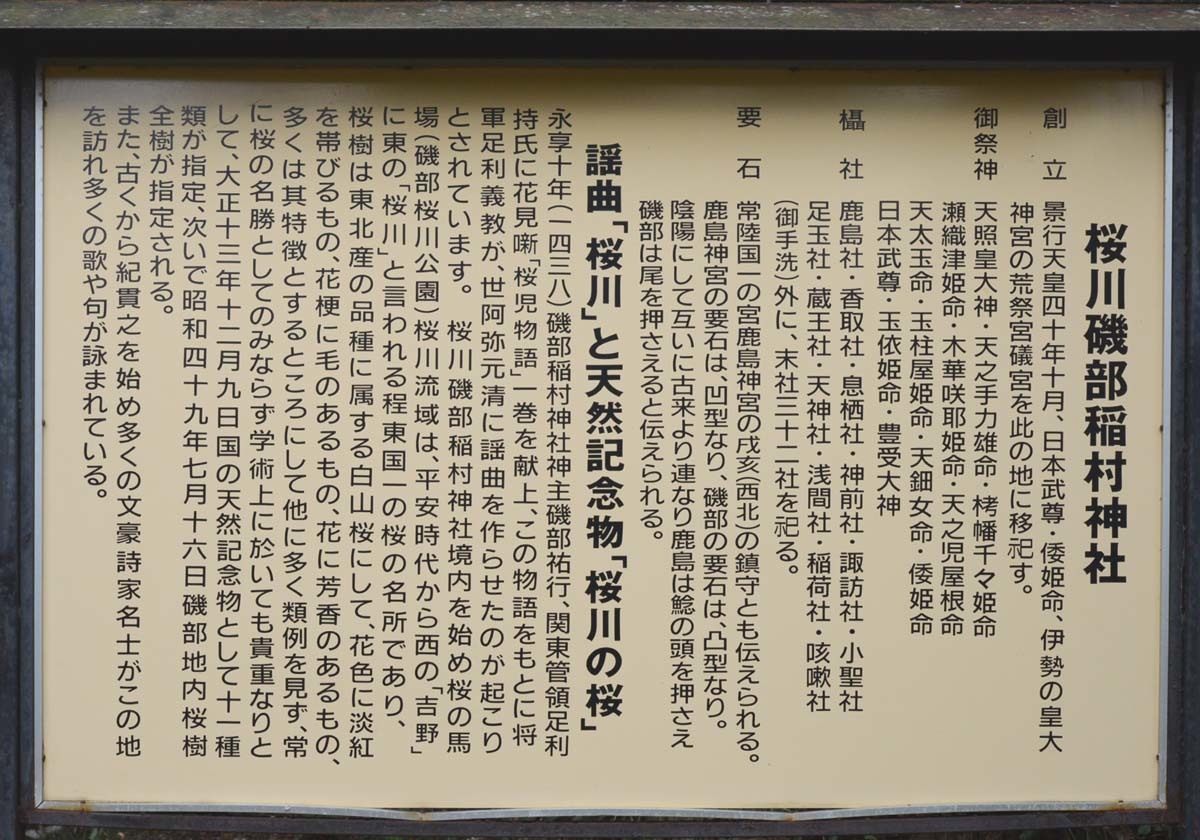 桜川磯部稲村神社
創立 景行天皇四十年十月、日本武尊・倭姫命、伊勢の皇大
神宮の荒祭宮礒宮を此の地に移祀す。
御祭神 天照皇大神・天之手力雄命・栲幡千々姫命
瀬織津姫命・木華咲耶姫命・天之児屋根命
天太玉命・玉柱屋姫命・天鈿女命・倭姫命
日本武尊・玉依姫命・豊受大神
欇社 鹿島社・香取社・息栖社・神前社・諏訪社・小聖社
足玉社・蔵王社・天神社・浅間社・稲荷社・咳嗽社
(御手洗)外に、末社三十二社を祀る。
要石 常陸国一の宮鹿島神宮の戌亥(西北)の鎮守とも伝えられる。
鹿島神宮の要石は、凹型なり、磯部の要石は、凸型なり。
陰陽にして互いに古来より連なり鹿島は鯰の頭を押さえ
磯部は尾を押さえると伝えられる。
謡曲「桜川」と天然記念物「桜川の桜」
永享十年(一四三八)磯部稲村神社神主磯部祐行、関東管領足利
持氏に花見噺「桜児物語」一巻を献上、この物語をもとに将
軍足利義教が、世阿弥元清に謡曲を作らせたのが起こり
とされています。 桜川磯部稲村神社境内を始め桜の馬
場(磯部桜川公園)桜川流域は、平安時代から西の「吉野」
に東の「桜川」と言われる程東国一の桜の名所であり、
桜樹は東北産の品種に属する白山桜にして、花色に淡紅
を帯びるもの、花梗に毛のあるもの、花に芳香のあるもの、
多くは其特徴とするところにして他に多く類例を見ず、常
に桜の名勝としてのみならず学術上に於いても貴重なりと
して、大正十三年十二月九日国の天然記念物として十一種
類が指定、次いで昭和四十九年七月十六日磯部地内桜樹
全樹が指定される。
また、古くから紀貫之を始め多くの文豪詩家名士がこの地
を訪れ多くの歌や句が詠まれている。